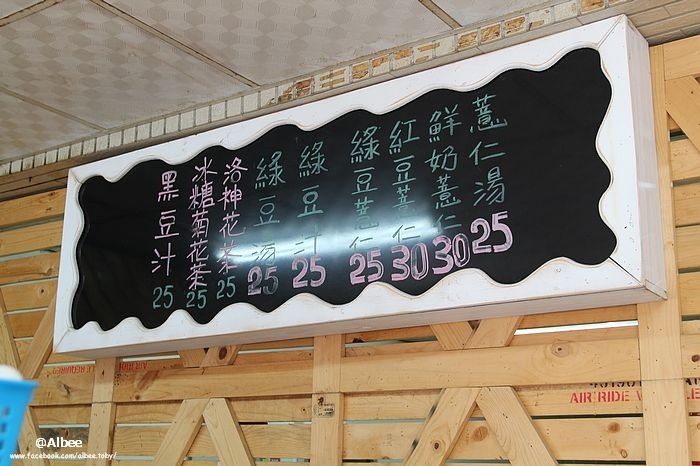 薏仁湯 25
鮮奶薏仁 30
紅豆薏仁 30
綠豆薏仁 25
綠豆汁 25
綠豆湯 25
洛神花茶 25
冰糖菊花茶 25
黑豆汁 25
AIR RIDE
@Albee
www.facebook.com/albee.toby/